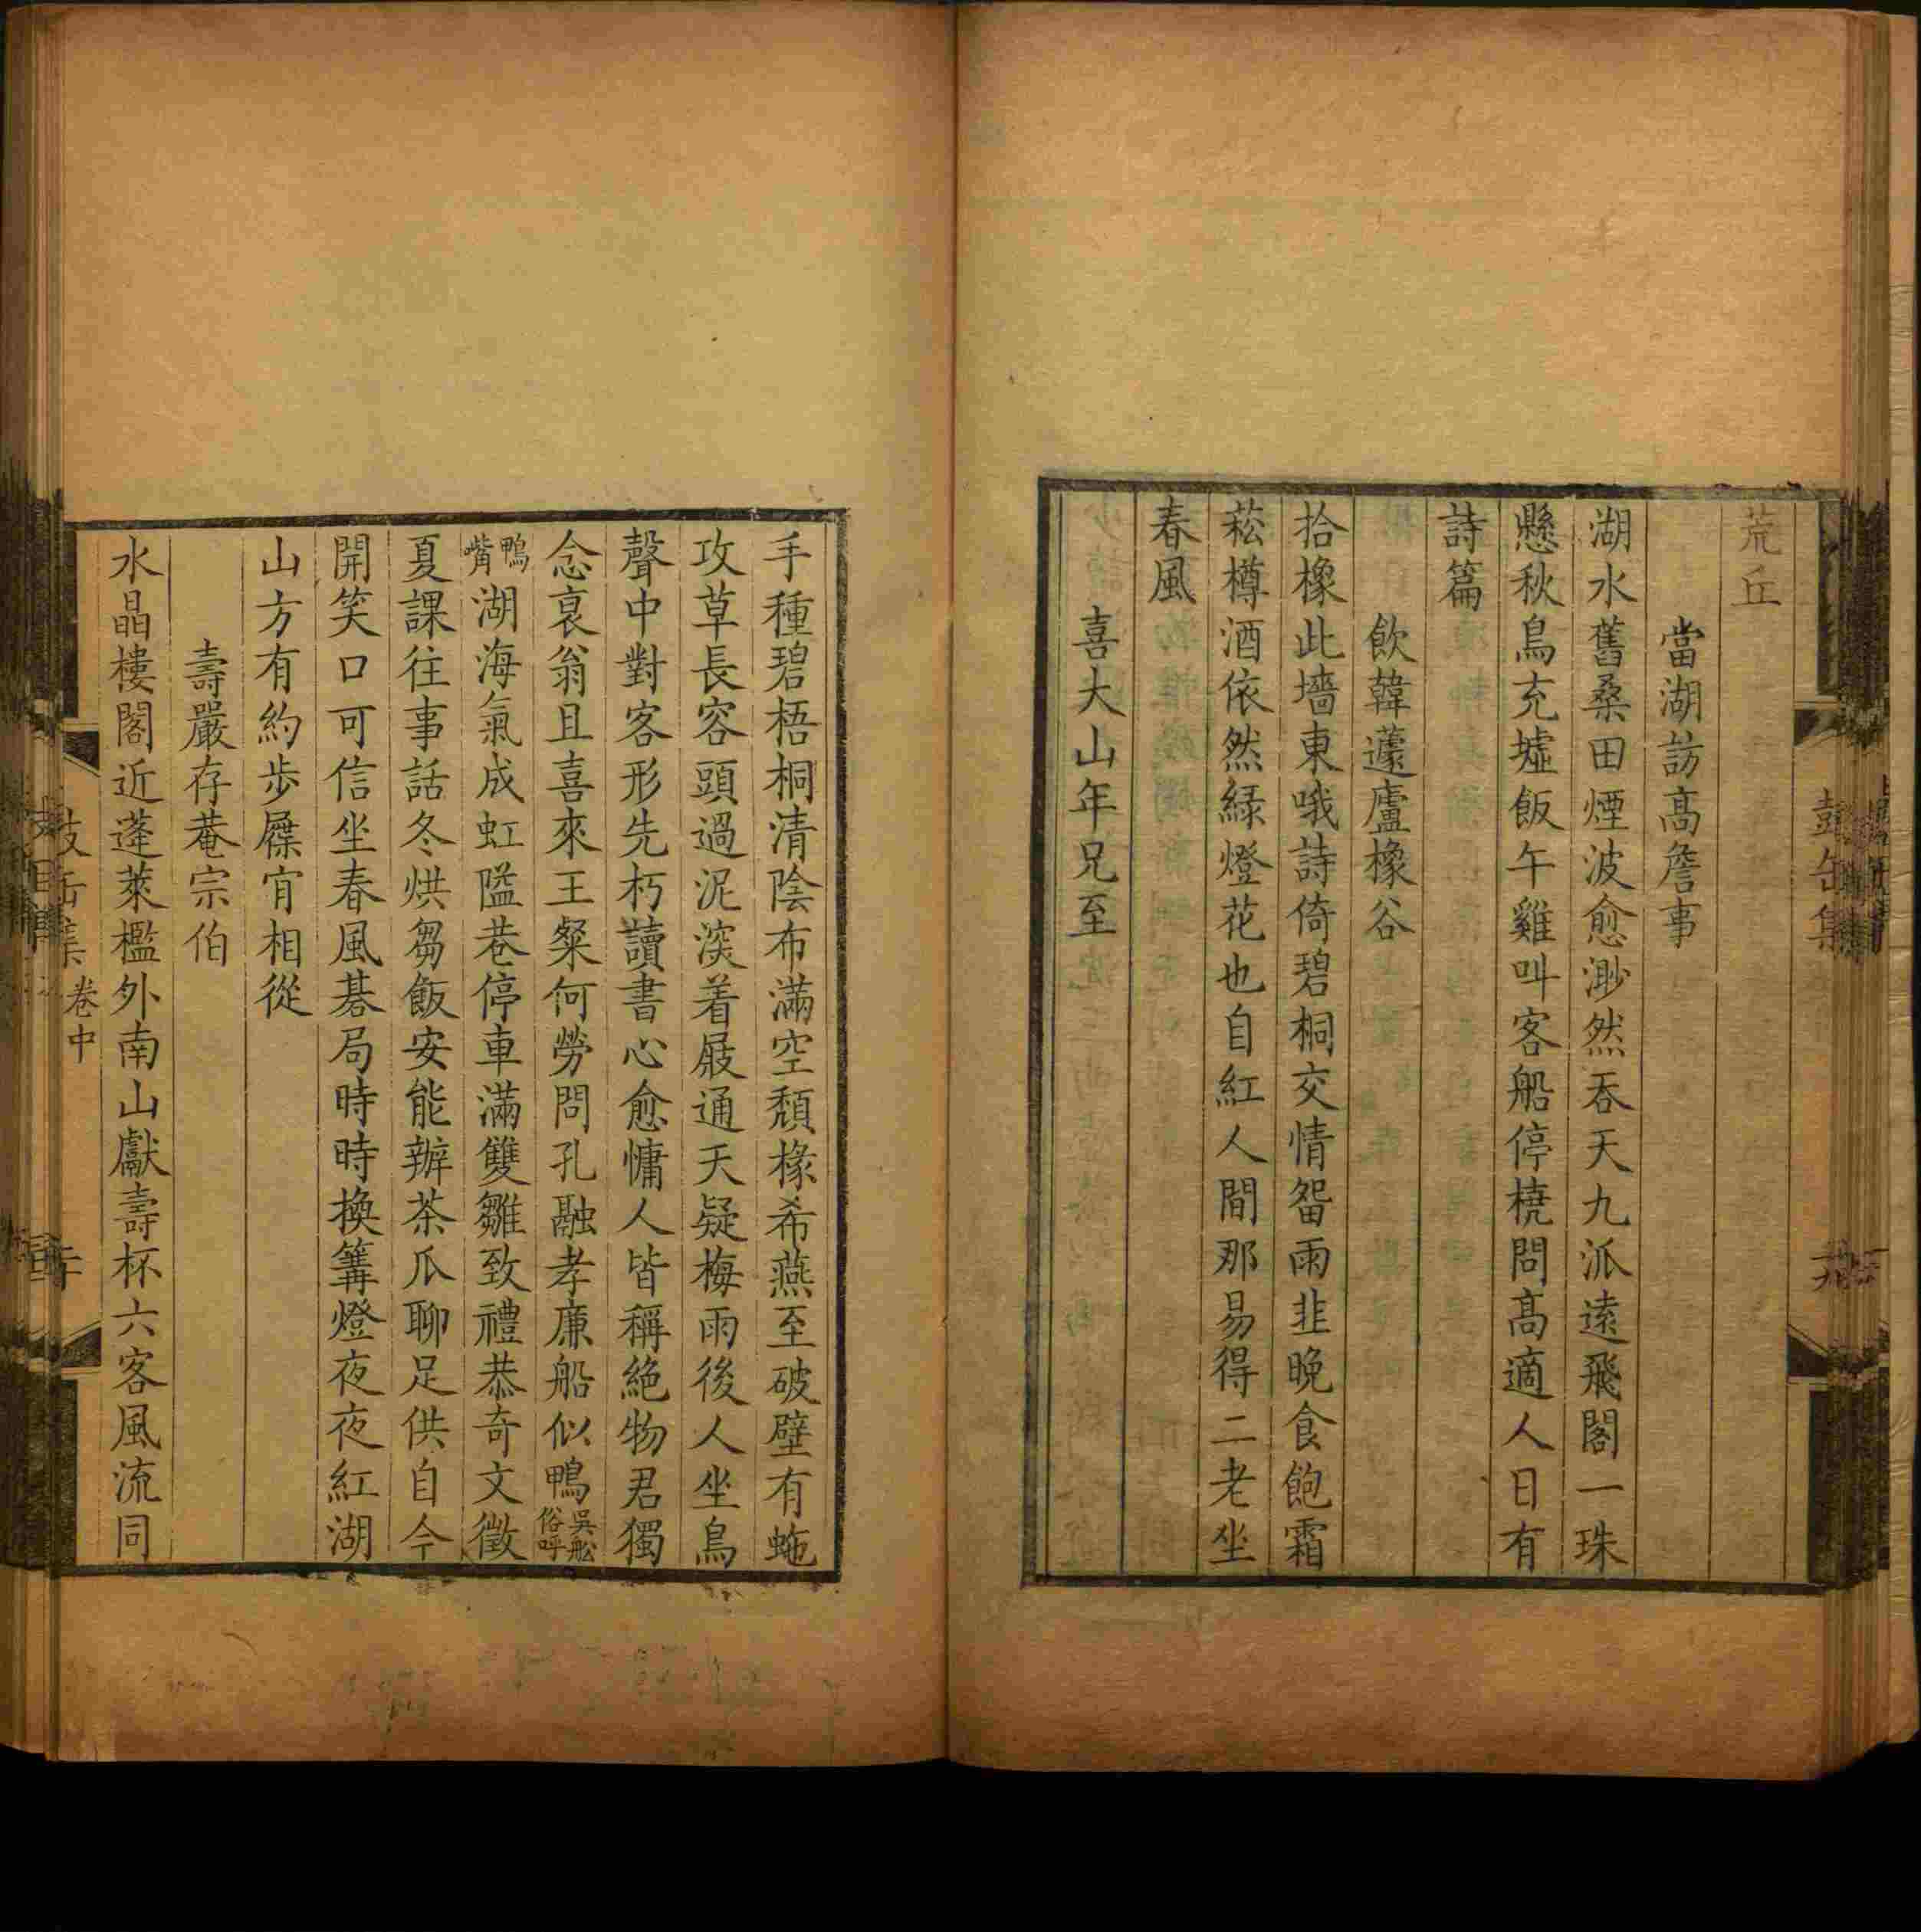 荒丘
當湖訪高詹事
湖水舊桑田煙波愈渺然吞天九派遠飛閣一珠
懸秋鳥充墟飯午雞叫客船停橈問高適人日有
詩篇
飲韓蘧廬橡谷
拾橡此墻東哦詩倚碧桐交情留雨韭晚食飽霜
菘樽酒依然綠燈花也自紅人間那易得二老坐
春風
喜大山年兄至
手種碧梧桐清陰布滿空頹椽希燕至破壁有蛇
攻草長容頭過泥深着屐通天疑梅雨後人坐鳥
聲中對客形先朽讀書心愈慵人皆稱絕物君獨
念哀翁且喜來王粲何勞問孔融孝廉船似鴨吳舩俗呼
鴨嘴湖海氣成虹隘巷停車滿雙雛致禮恭奇文徵
夏課往事話冬烘芻飯安能辦茶瓜聊足供自今
開笑口可信坐春風碁局時時換篝燈夜夜紅湖
山方有約步屧肎相從
壽嚴存菴宗伯
水晶樓閣近蓬萊檻外南山獻壽杯六客風流同
卷中